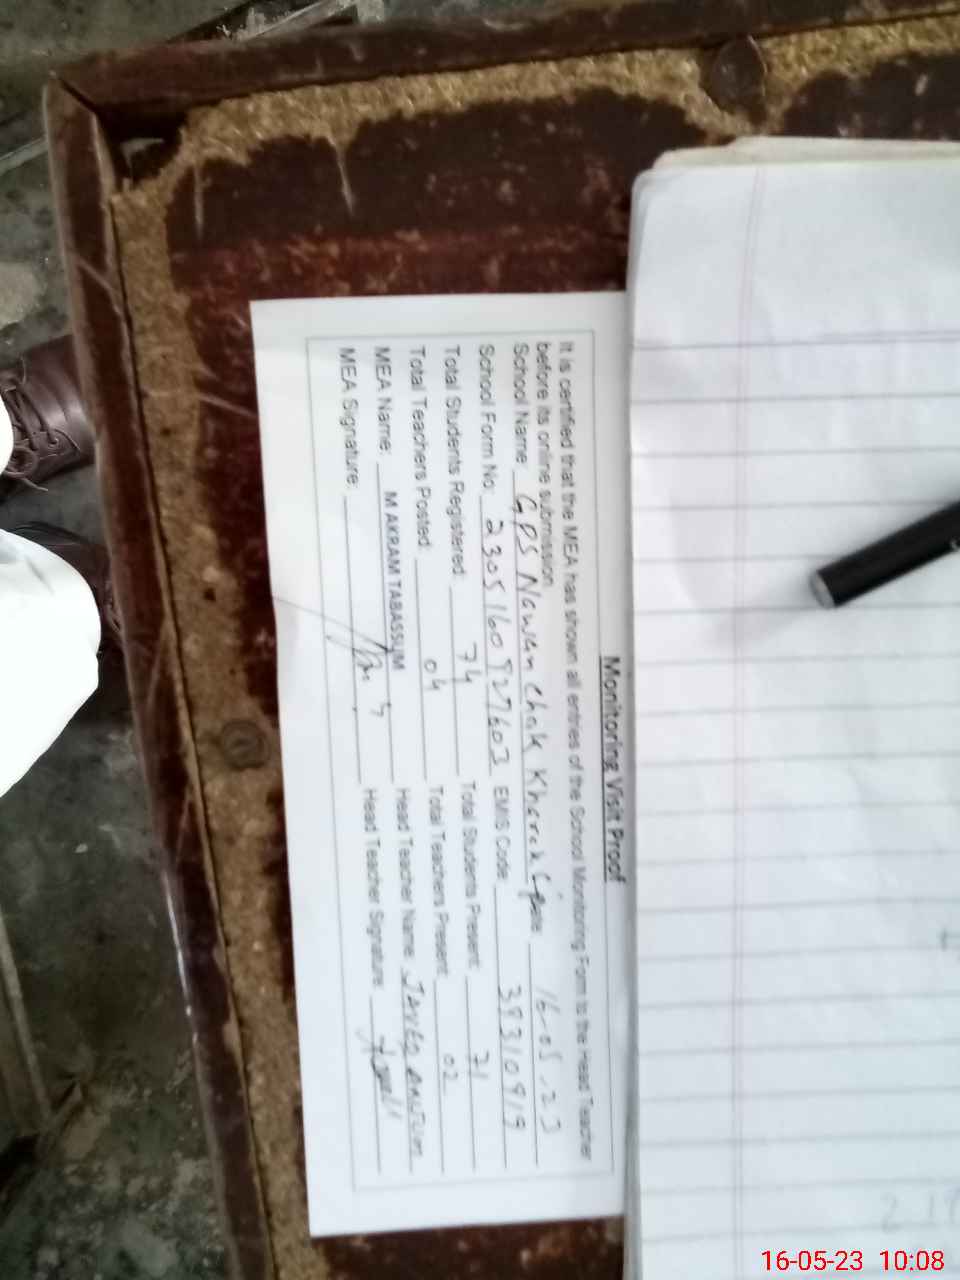 Monitoring Visit Proof
It is certified that the MEA has shown all entries of the School Monitoring Form to the Head Teacher
before its online submission
School Name: GPS Nawan Chak Kharak 16-05-23
School Form No: 2305160927603 EMIS Code 39310919
Total Students Registered: 74 Total Students Present: 71
Total Teachers Posted: 04 Total Teachers Present: 02
MEA Name: M AKRAM TABASSUM Head Teacher Name: JAVED
MEA Signature: Head Teacher Signature:
16-05-23 10:08